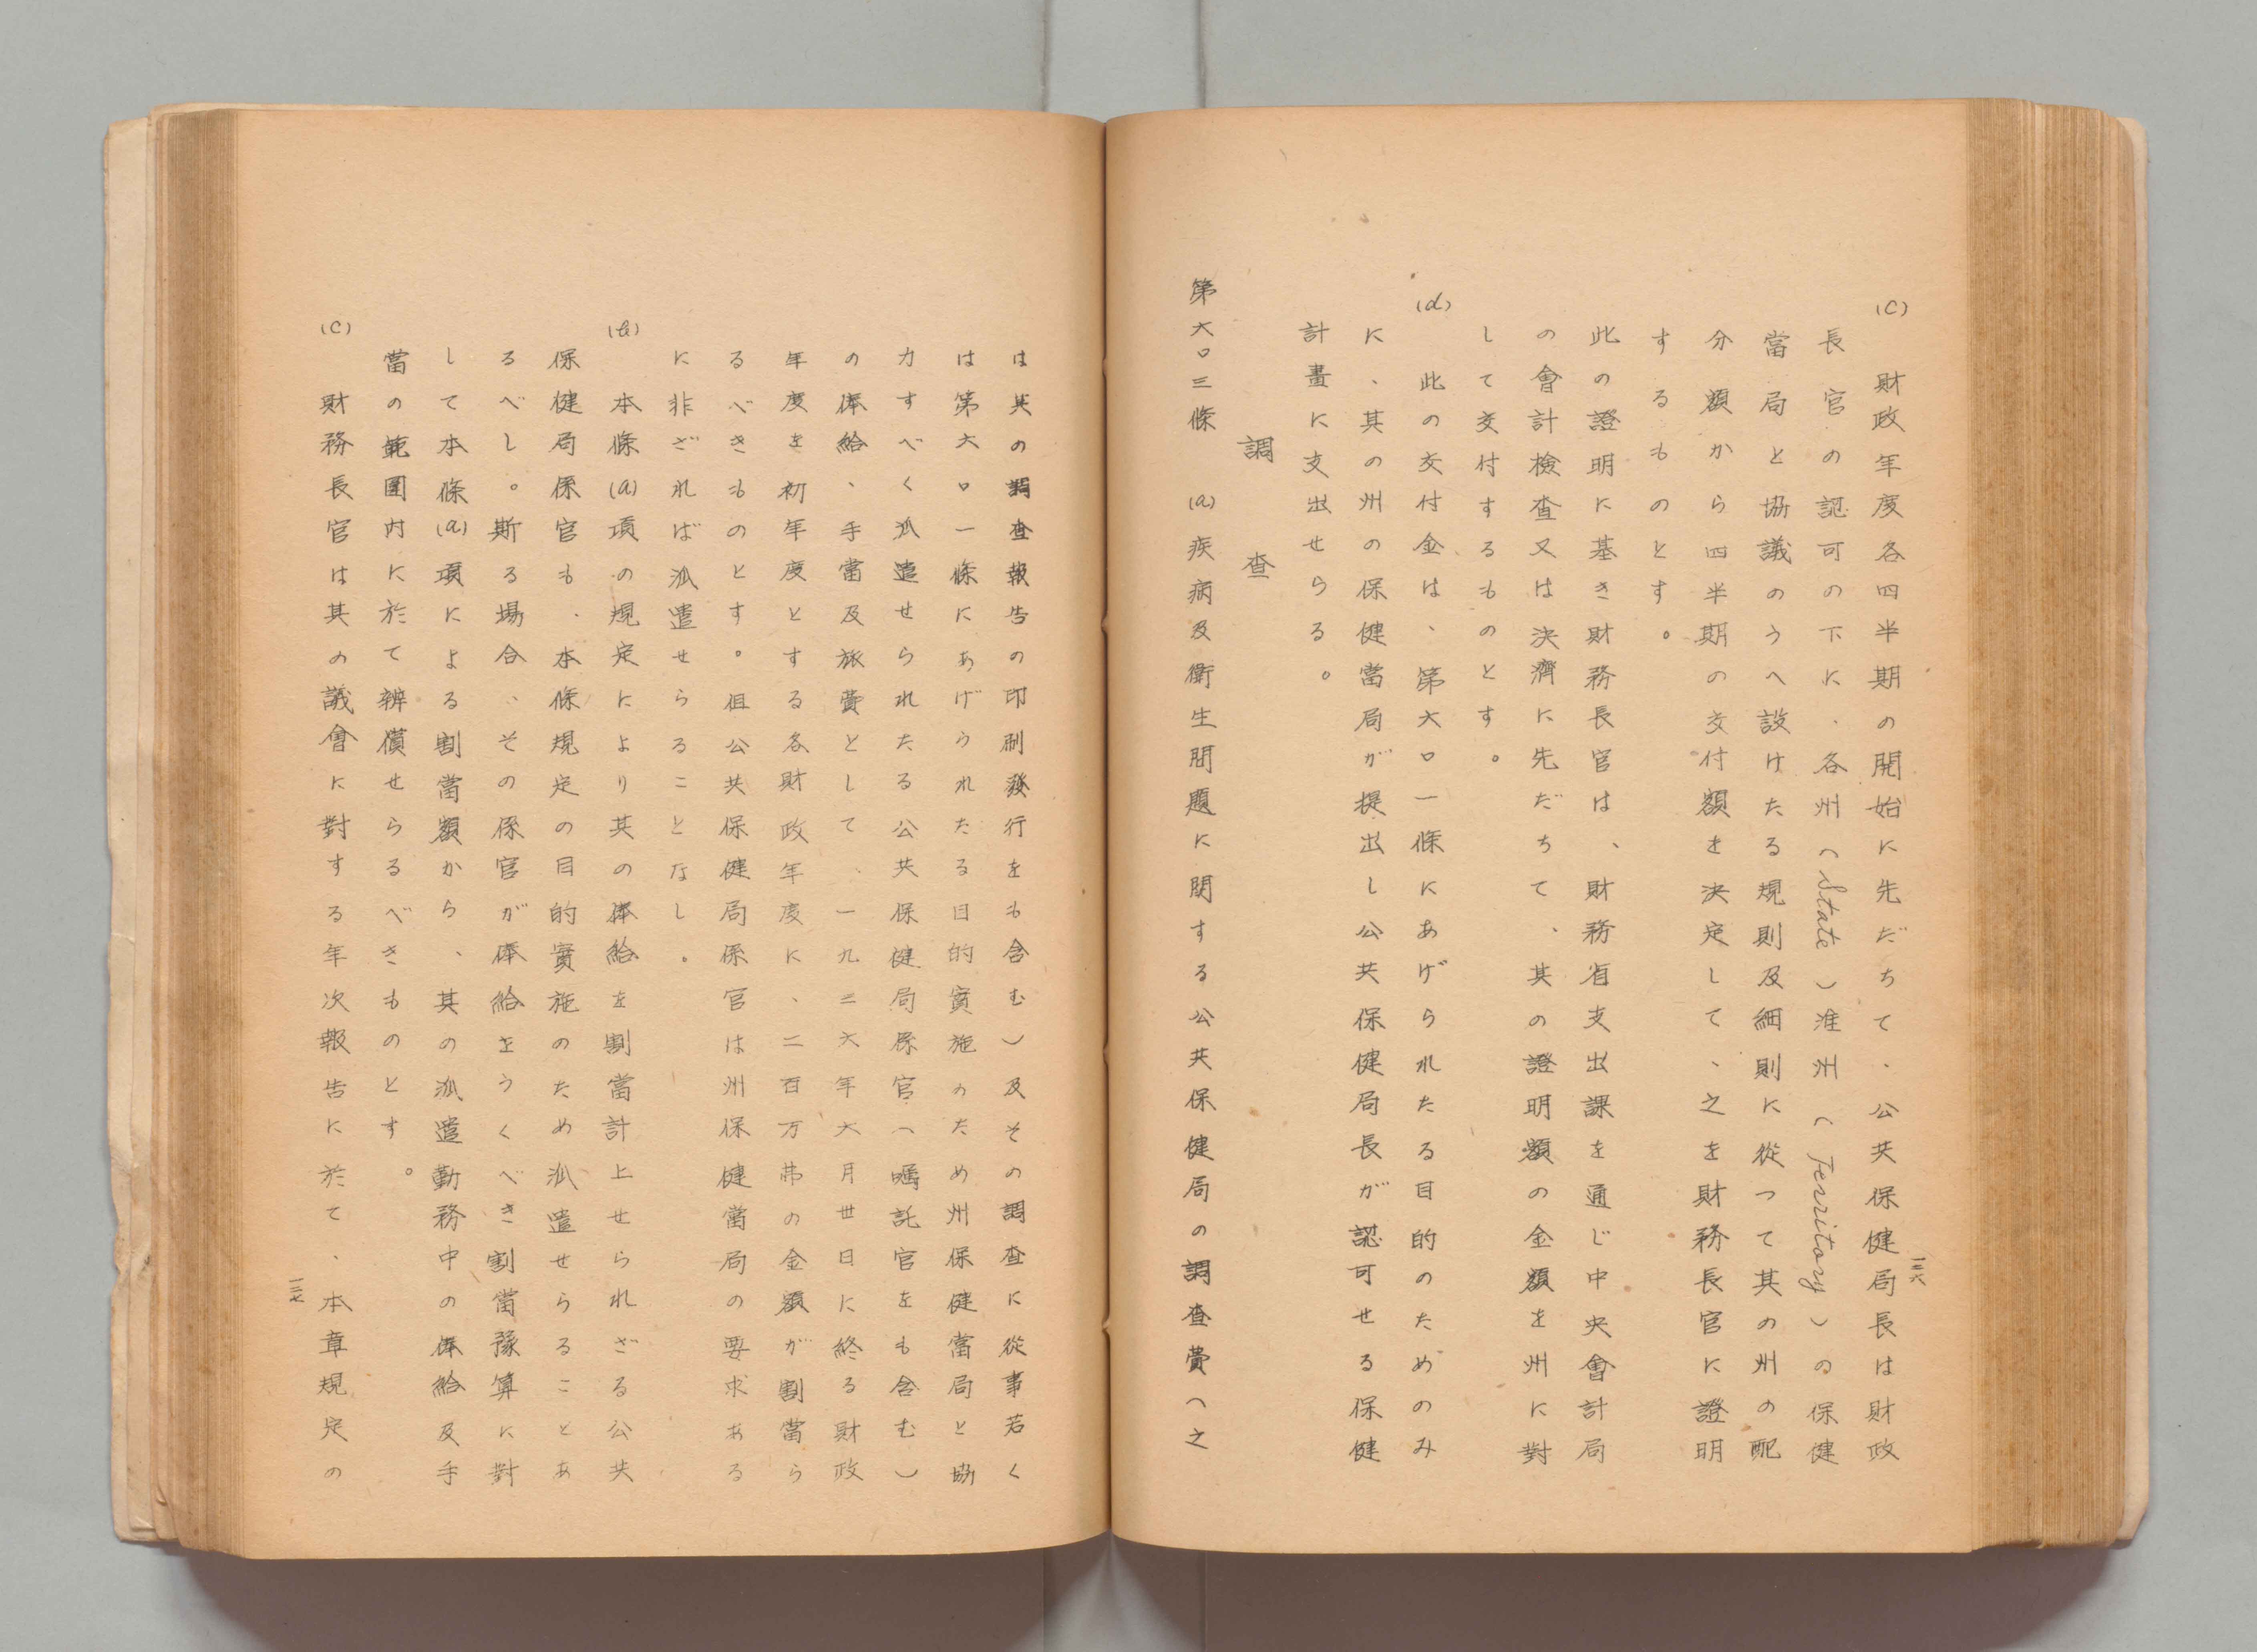 (C)
財政年度各四半期の開始に先だちて、公共保健局長は財政
長官の認可の下に、各州(State)准州(Territory)の保健
當局と協議のうへ設けたる規則及細則に從つて其の州の配
分額から四半期の交付額を決定して、之を財務長官に證明
するものとす。
此の證明に基き財務長官は、財務省支出課を通じ中央會計局
の會計檢査又は決濟に先だちて、其の證明額の金額を州に對
して交付するものとす。
(d)
此の交付金は、第六〇一條にあげられたる目的のためのみ
に、其の州の保健當局が提出し公共保健局長が認可せる保健
計畫に支出せらる。
調査
第六〇三條 (a)疾病及衛生問題に関する公共保健局の調査費(之
一三六
は其の調査報告の印刷發行をも含む)及その調査に從事若く
は第六〇一條にあげられたる目的實施のため州保健當局と協
力すべく派遣せられたる公共保健局係官(嘱託官をも含む)
の俸給、手當及旅費として、一九三六年六月丗日に終る財政
年度を初年度とする各財政年度に、二百万弗の金額が割當ら
るべきものとす。但公共保健局係官は州保健當局の要求ある
に非ざれば派遣せらることなし。
(b)
本條(a)項の規定により其の俸給を割當計上せられざる公共
保健局係官も、本條規定の目的實施のため派遣せらることあ
るべし。斯る場合、その係官が俸給をうくべき割當豫算に對
して本條(a)項による割當額から、其の派遣勤務中の俸給及手
當の範囲内に於て辨償せらるべきものとす。
(C)
財務長官は其の議會に對する年次報告に於て、本章規定の
一三七